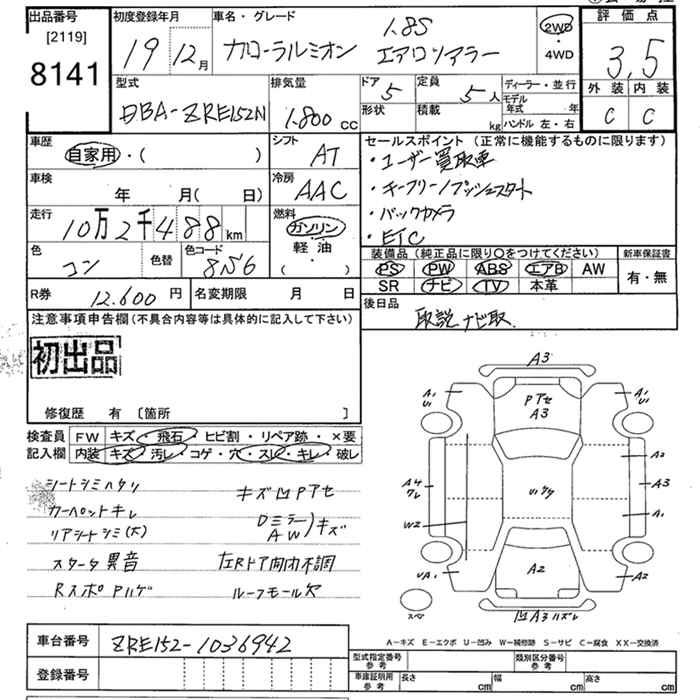 出品番号
[2119]
8141
初度登録年月
19年12月
車名・グレード
1.8S
カローラルミオン エアロツアラー
2WD
・
4WD
評価点
3.5
外装 内装
C C
型式
DBA-ZRE152N
排気量
1.800 CC
ドア
5
定員
5人
形状
積載
kg
ディーラー・並行
モデル年式 年
ハンドル 左・右
車歴
自家用・( )
シフト
AT
車検
年 月( 日)
冷房
AAC
走行
10万2千488km
燃料
ガソリン
軽油
( )
色
コン
色替
色コード
8S6
R券
12.600円
名変期限 月 日
セールスポイント(正常に機能するものに限ります)
・ユーザー買取車
・キーフリー/プッシュスタート
・バックカメラ
・ETC
装備品(純正品に限り○をつけてください)
新車保証書
PS PW ABS エアB AW
SR ナビ TV 本革
有・無
後日品
取説 ナビ取
注意事項申告欄(不具合内容等は具体的に記入して下さい)
初出品
修復歴 有 [箇所 ]
検査員記入欄
FW キズ・飛石・ヒビ割・リペア跡・×要
内装 キズ・汚レ・コゲ・穴・スレ・キレ・破レ
シートシミヘタリ
カーペットキレ
リアシートシミ(大)
スタータ異音
RスポPハゲ
キズ凹Pアセ
Dミラー
AW
)キズ
左Rドア内内不調
ルーフモール欠
A3
Pアセ
A3
A1
U1
A1
U1
A2
A3
A1
A4
ワレ
W2
A2
UA1
A2
スペア
凹A3ハズレ
A−キズ E−エクボ U−凹み W−補修跡 S−サビ C−腐食 XX−交換済
車台番号
ZRE152-1036942
登録番号
型式指定番号
参考
類別区分番号
参考
車庫証明用
参考
長さ cm
幅 cm
高さ cm